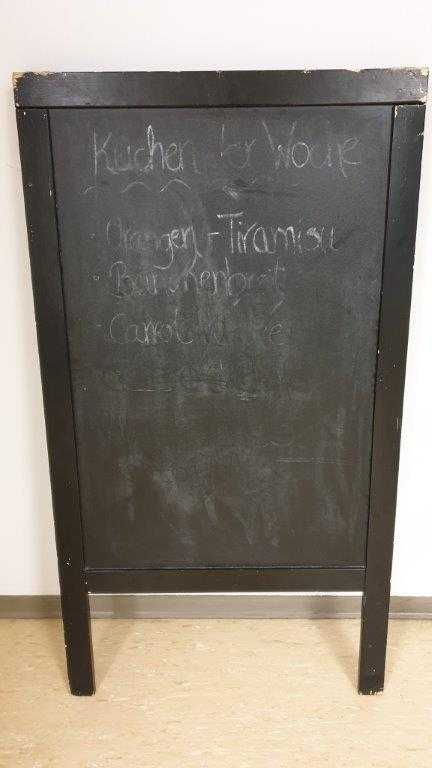 Kuchen der Woche
· Orangen-Tiramisu
· Bananenbrot
· Carrot